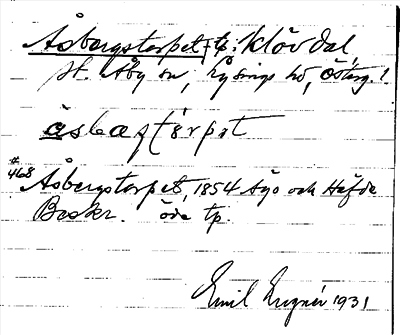 Åsbergstorpet, tp. Klövdal
St. Åby sn, Lysings hd, Österg.
åsbæʃtôrpet
#468 Åsbergstorpet, 1854 Ägo och Häfda
Beskr. öde tp.
Emil 1931